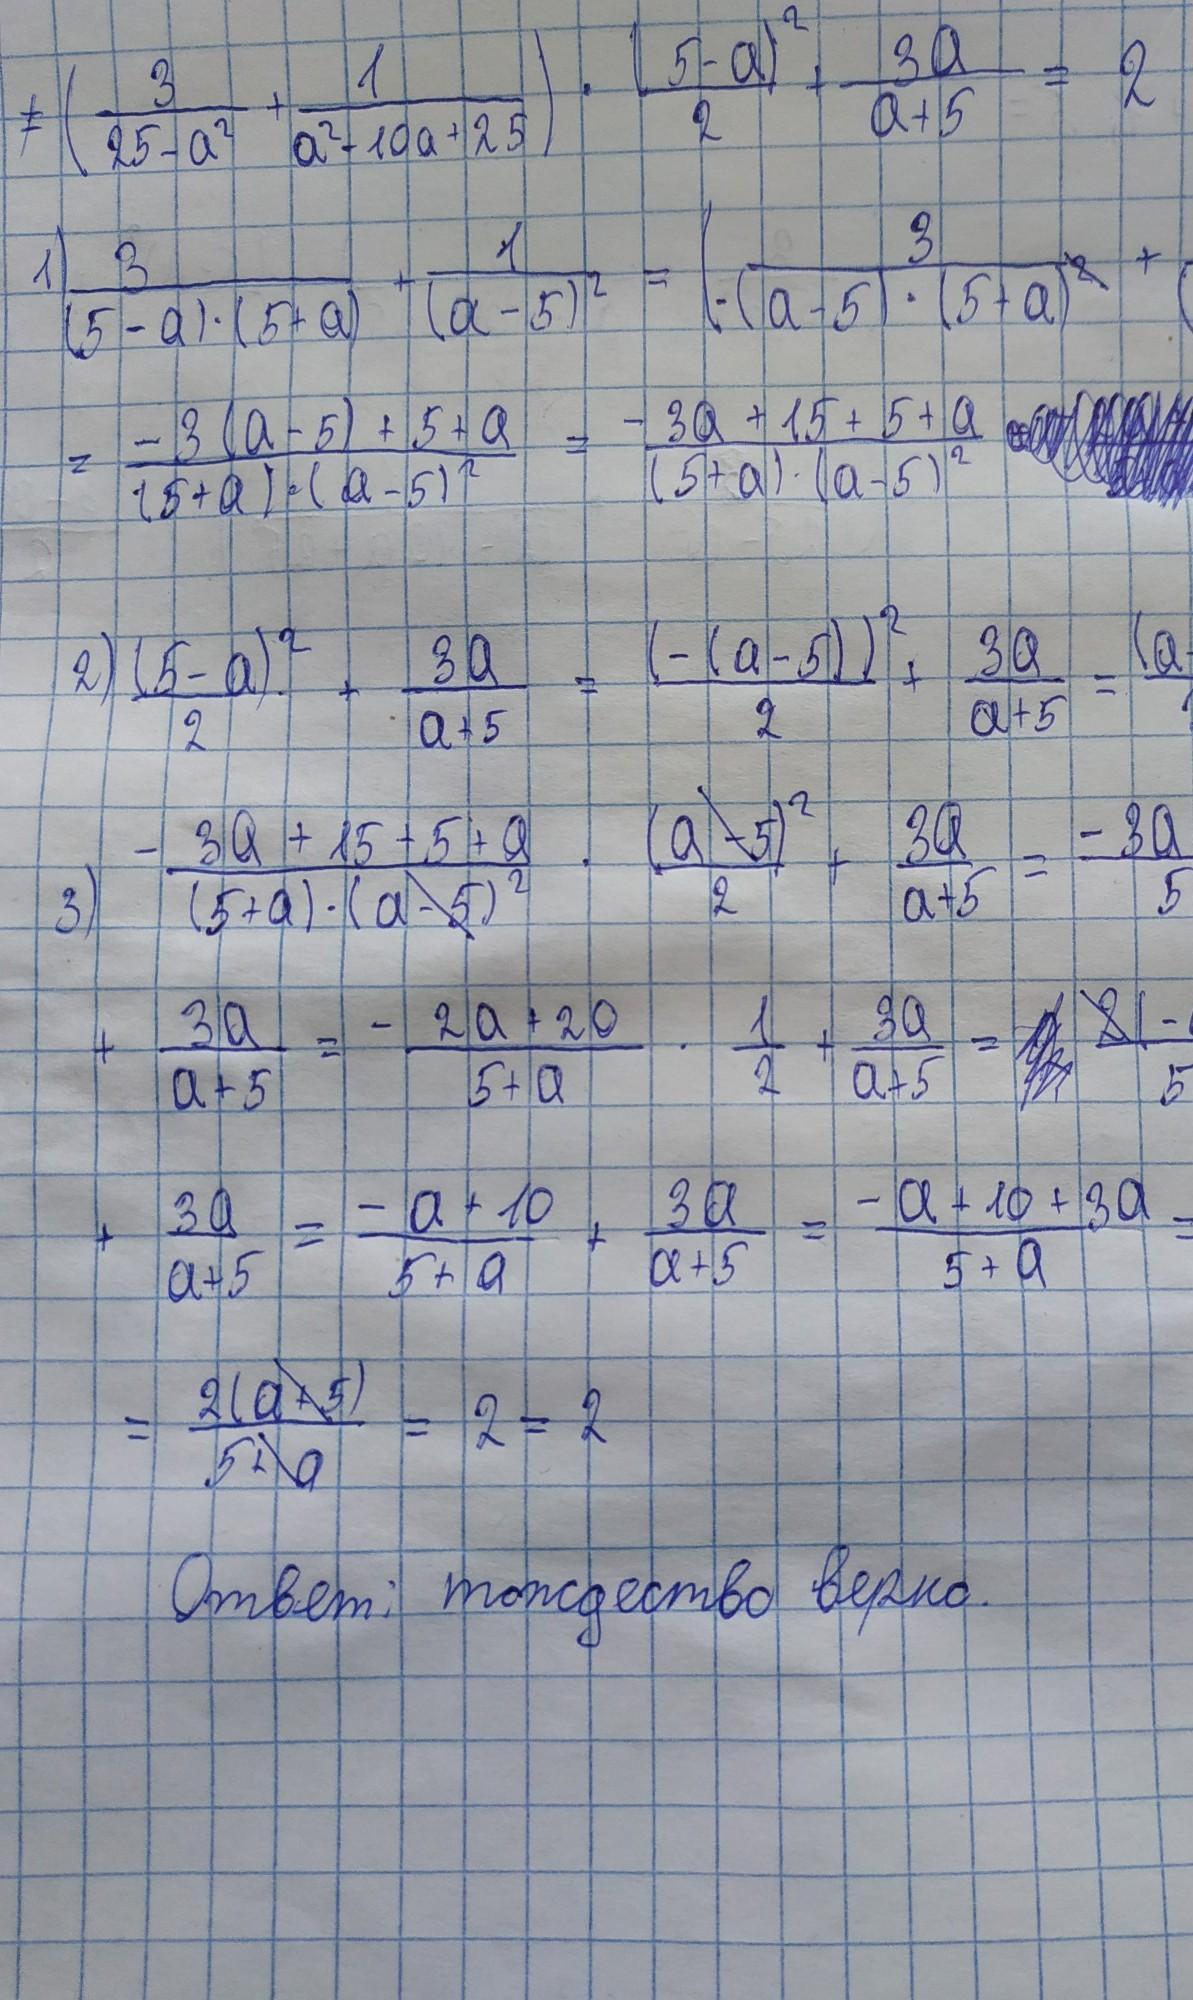 ≠ (3/(25-a²) + 1/(a²-10a+25)) · (5-a)²/2 + 3a/(a+5) = 2
1) 3/((5-a)·(5+a)) + 1/(a-5)² = (3/(-(a-5)·(5+a)) +
= (-3(a-5)+5+a)/((5+a)·(a-5)²) = (-3a+15+5+a)/((5+a)·(a-5)²)
2) (5-a)²/2 + 3a/(a+5) = (-(a-5))²/2 + 3a/(a+5) = (a-
3) (-3a+15+5+a)/((5+a)·(a-5)²) · (a-5)²/2 + 3a/(a+5) = -3a/5
+ 3a/(a+5) = (-2a+20)/(5+a) · 1/2 + 3a/(a+5) = 2(-/5
+ 3a/(a+5) = (-a+10)/(5+a) + 3a/(a+5) = (-a+10+3a)/(5+a) =
= 2(a+5)/(5+a) = 2 = 2
Ответ: тождество верно.